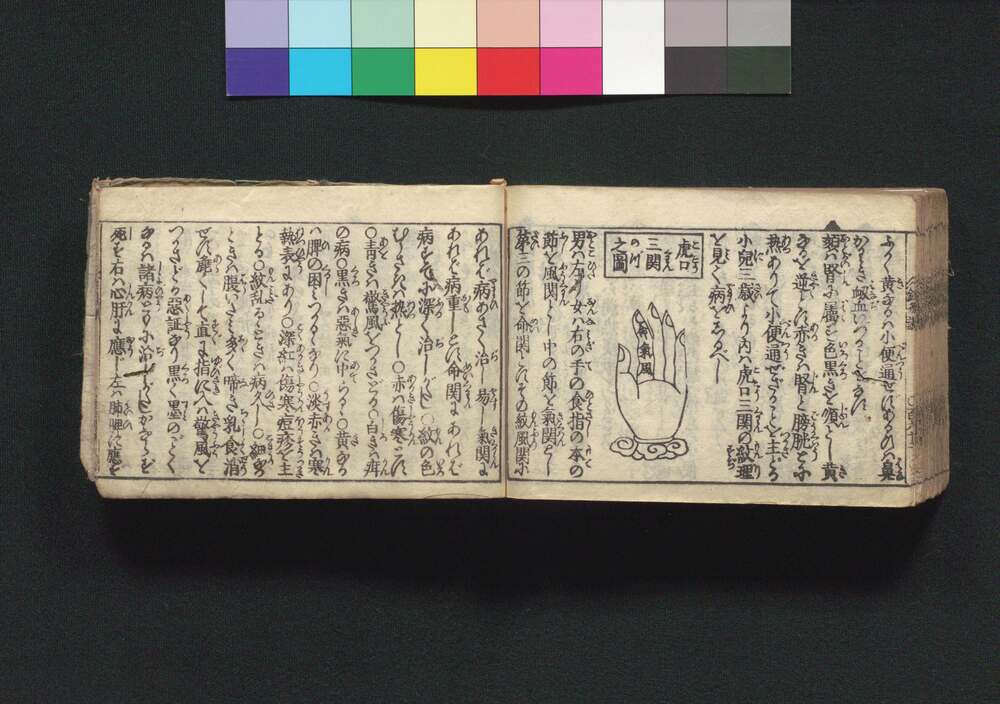 ふかく黄なるハ小便通ぜず
頬ハ腎に属し色黒きを順とし黄
なるを逆とし赤きハ腎と膀胱とに
熱ありて小便通ぜざることを主どる
小児三歳より内ハ虎口三関の紋理
を見て病をしるべし
虎口
三関
のづ
之圖
命氣風
男ハ左り女ハ右の手の食指の本の
節を風関とし中の節を氣関とし
第三の節を命関とす其の紋風関に
あれバ病あさく治し易し氣関に
あれバ病重しとす命関にあれバ
病を深く治しがたし○紋の色
むらさきハ熱とし○赤きハ傷寒とす
○青きハ驚風をつかさどる○白きハ疳
の病○黒きハ悪氣に中る○黄なる
ハ脾の困るゝなり○淡赤きハ寒
熱表にあり○深紅ハ傷寒痘疹を主
どる○紋乱るゝときハ病久し○細き
ときハ腹いたミ多く啼き乳食消
せず麁くして直に指にハ驚風を
つかさどる悪証なり黒く墨のごとく
なるハ諸病
死す右ハ心肝に應じ左ハ肺脾に應ず